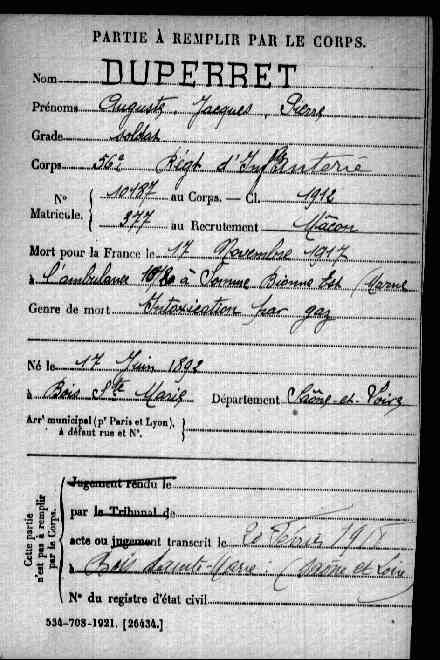 PARTIE À REMPLIR PAR LE CORPS.
Nom DUPERRET
Prénoms Auguste, Jacques, Pierre
Grade soldat
Corps 56e Régt d'Infanterie
N° Matricule. 10487 au Corps. — Cl. 1912
377 au Recrutement Mâcon
Mort pour la France le 17 Novembre 1917
à l'ambulance à Somme Bionne Est (Marne
Genre de mort Intoxication par gaz
Né le 17 Juin 1892
à Bois Ste Marie Département Saône-et-Loire
Arrt municipal (pr Paris et Lyon),
à défaut rue et N°.
Cette partie n'est pas à remplir par le Corps.
Jugement rendu le
par le Tribunal de
acte ou jugement transcrit le 20 Février
à Bois Sainte-Marie (Saône et Loire)
N° du registre d'état civil
534-708-1921. [26434.]